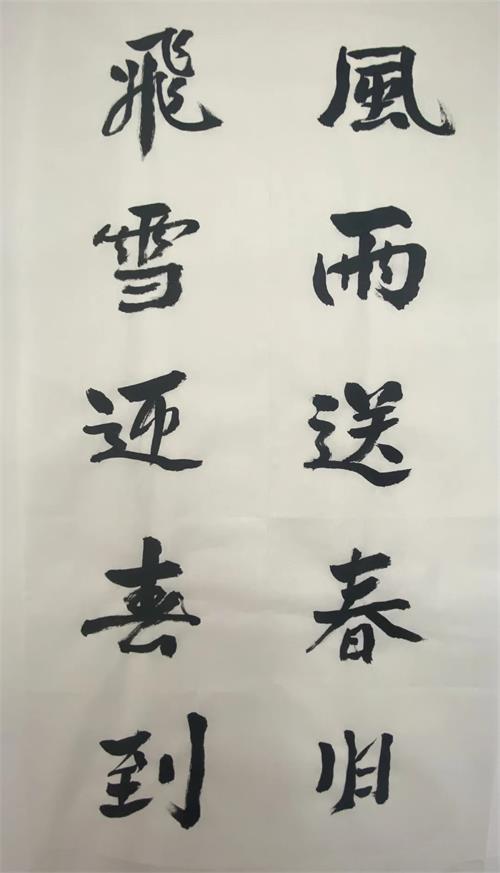 風雨送春归
飛雪迎春到